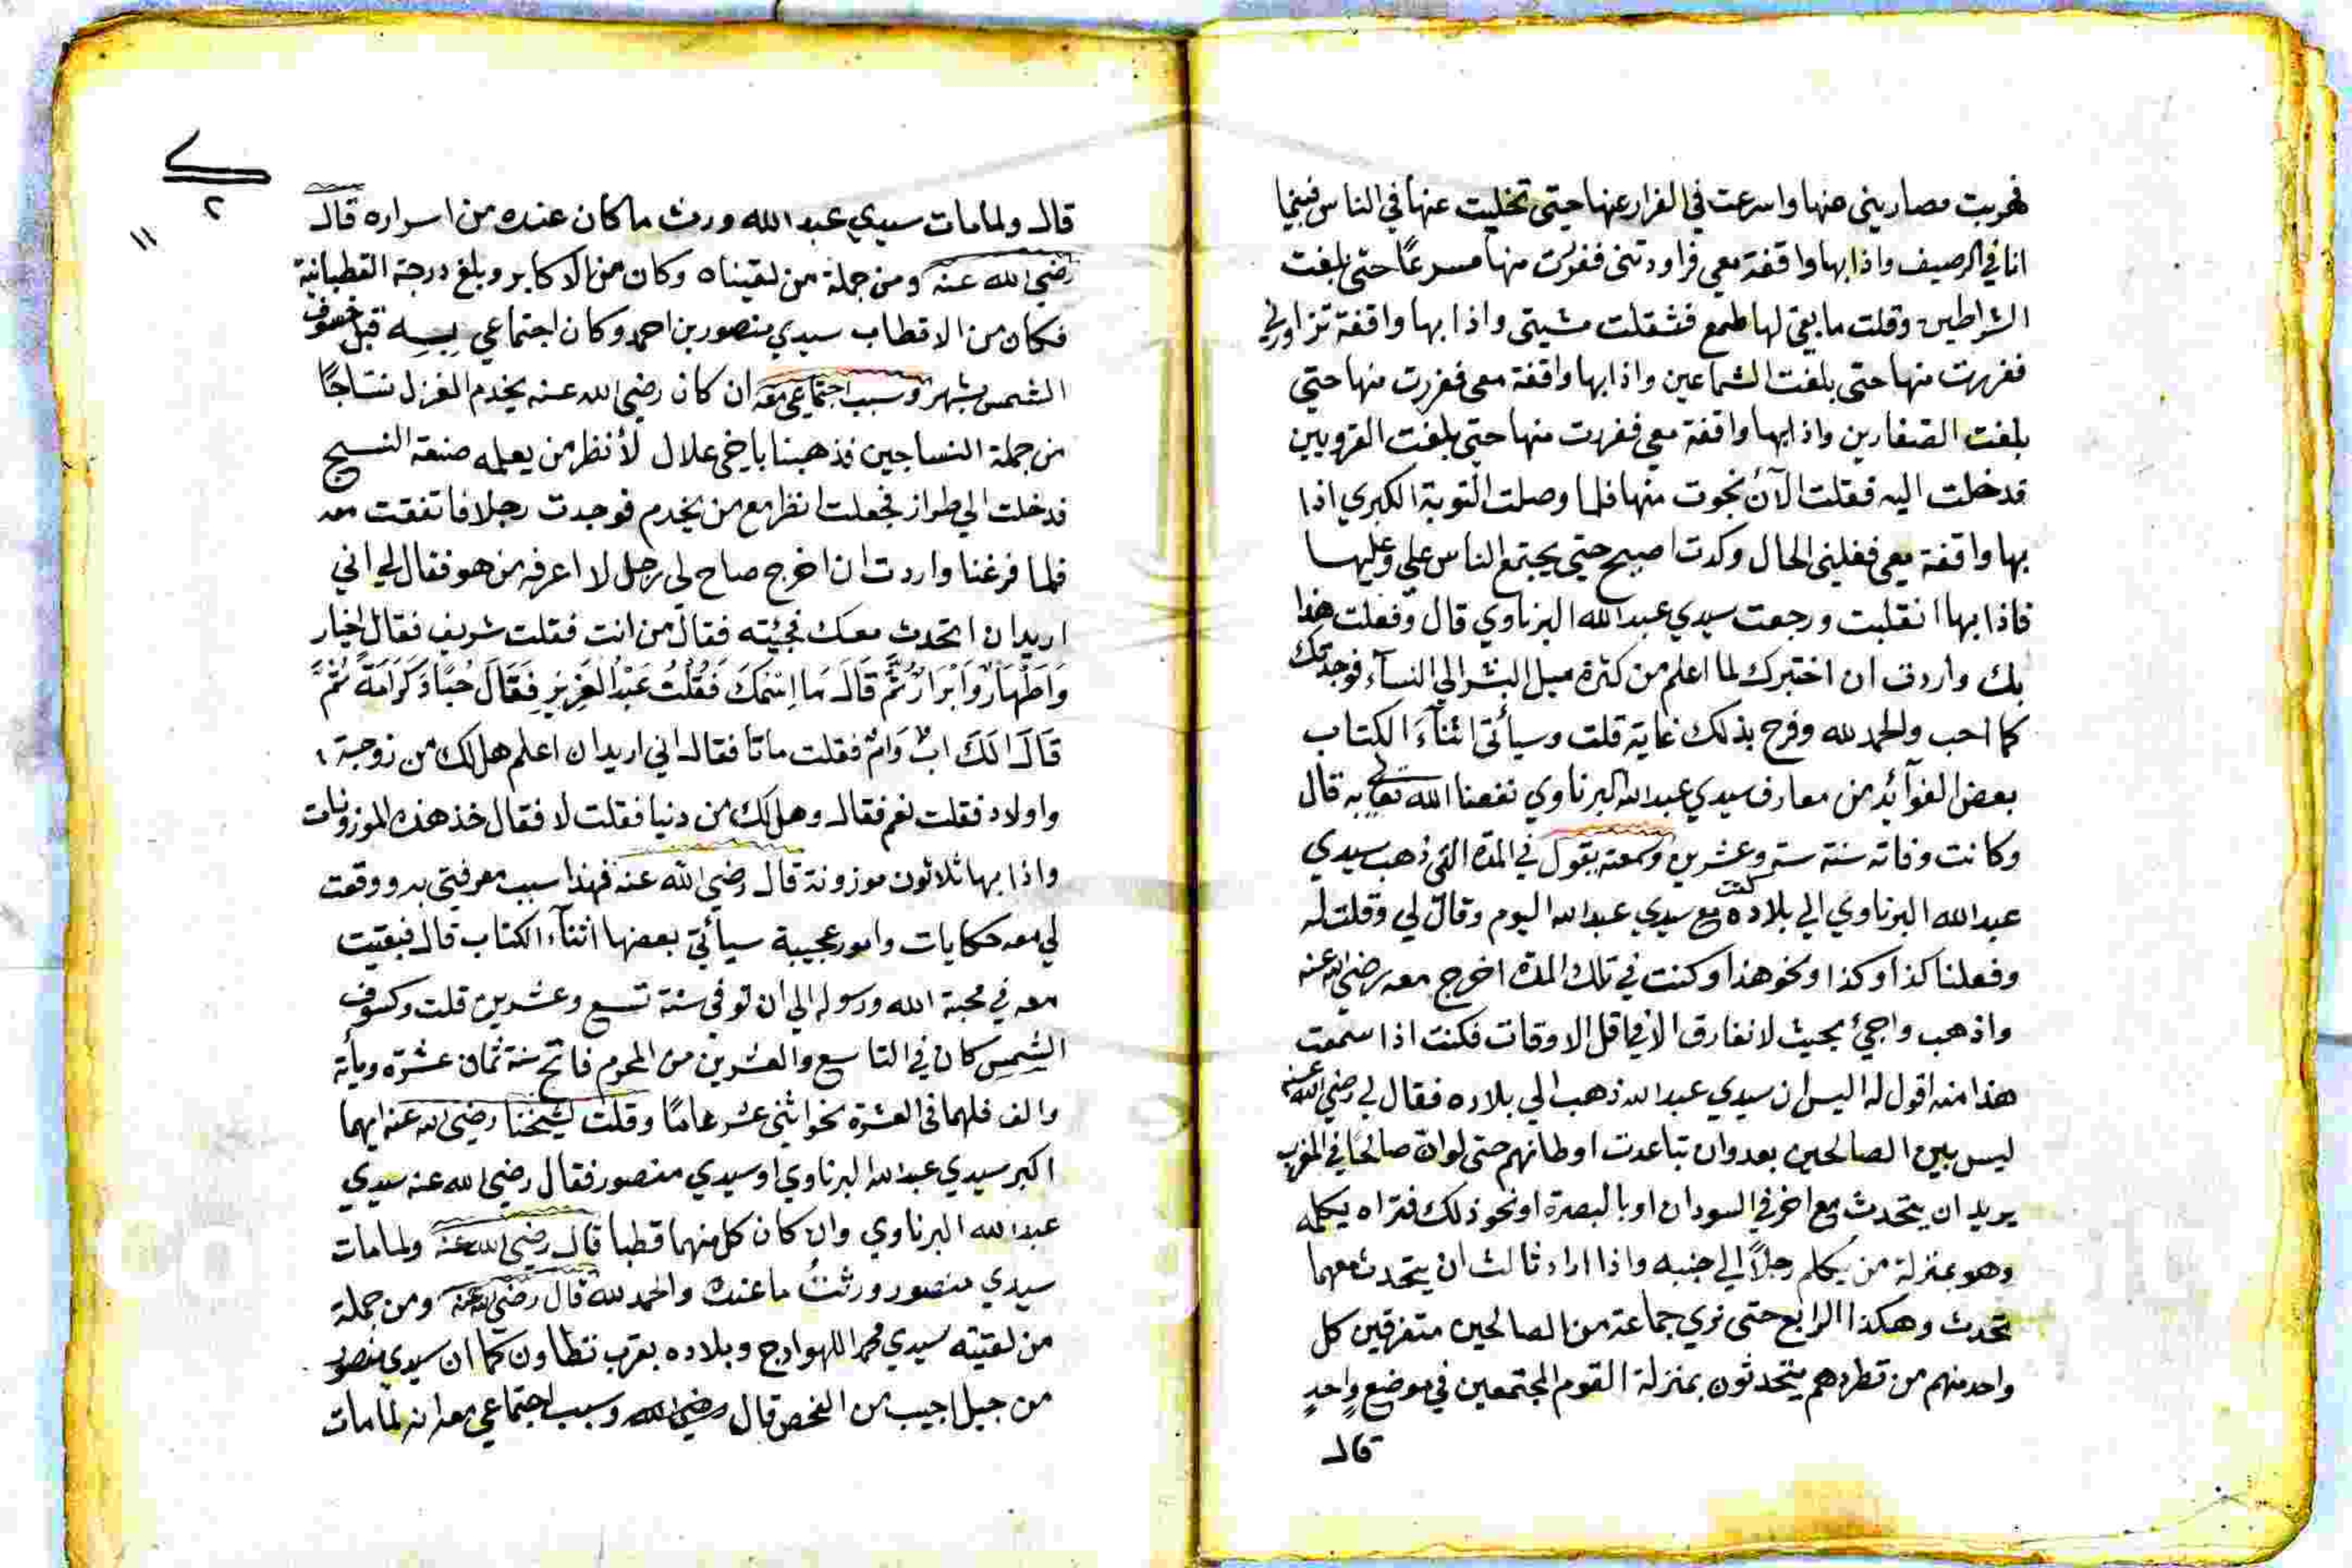 فهربت مصاريني منها واسرعت في الفرار عنها حتى تخليت عنها في الناس فبينما
انا في الرصيف واذا بها واقفة معي فراودتني ففررت منها مسرعًا حتى بلغت
الشراطين وقلت ما بقي لها طمع فثقلت مشيتي واذا بها واقفة تزاورني
ففررت منها حتى بلغت الشماعين واذا بها واقفة معي ففررت منها حتى
بلغت الصفارين واذا بها واقفة معي ففررت منها حتى بلغت القرويين
فدخلت اليه فقلت الآن نجوت منها فلما وصلت التوبة الكبري اذا
بها واقفة معي فغلبني الحال وكدت اصيح حتى يجتمع الناس علي وعليها
فاذا بها انقلبت ورجعت سيدي عبد الله البرناوي قال وفعلت هذا
بك واردت ان اختبرك لما اعلم من كثرة ميل البشر الي النسآء فوجدتك
كما احب والحمد لله وفرح بذلك غاية قلت وسيأتي اثنآءَ الكتاب
بعض الفوآئد من معارف سيدي عبد الله البرناوي نفعنا الله تعالي به قال
وكانت وفاته سنة ستٍ وعشرين وسمعته يقول في المدة التي ذهب سيدي
عبد الله البرناوي الي بلاده كنت مع سيدي عبد الله اليوم وقال لي وقلت له
وفعلنا كذا وكذا ونحو هذا وكنت في تلك المدة اخرج معه رضي الله عنه
واذهب واجيُ بحيث لا نفارق الا في اقل الاوقات فكنت اذا سمعت
هذا منه اقول له اليس ان سيدي عبد الله ذهب الي بلاده فقال لي رضي الله عنه
ليس بين الصالحين بعد وان تباعدت اوطانهم حتى لو ان صالحًا في المغرب
يريد ان يتحدث مع اخر في السودان او بالبصرة او نحو ذلك فتراه يكلمه
وهو بمنزلة من يكلم رجلاً الي جنبه واذا اراد ثالث ان يتحدث معهما
تحدث وهكذا الرابع حتى نري جماعة من الصالحين متفرقين كل
واحد منهم من قطرهم يتحدثون بمنزلة القوم المجتمعين في موضع واحدٍ
قال
٢
١١
قال ولما مات سيدي عبد الله ورث ما كان عنده من اسراره قال
رضي الله عنه ومن جملة من لقيناه وكان من الاكابر وبلغ درجة القطبانية
فكان من الاقطاب سيدي منصور بن احمد وكان اجتماعي به قبل خسوف
الشمس بشهر وسبب اجتماعي معه ان كان رضي الله عنه يخدم الغزل نسّاجًا
من جملة النساجين فذهبنا باخي علال لأنظر من يعلمه صنعة النسيج
فدخلت الي طراز فجعلت انظر مع من يخدم فوجدت رجلا فاتفقت معه
فلما فرغنا واردت ان اخرج صاح لي رجل لا اعرفه من هو فقال لي اني
اريد ان اتحدث معك فجئته فقال من انت فقلت شريف فقال اخيار
وَاَطْهَارٌ وَاَبْرَارٌ ثُمَّ قَالَ مَا اِسْمُكَ فَقُلْتُ عَبْدُ الْعَزِيزِ فَقَالَ حُبًّا وَكَرَامَةً ثُمَّ
قَالَ اَلَكَ ابٌ وَامٌّ فقلت ماتا فقال اني اريد ان اعلم هل لك من زوجة
واولاد فقلت نعم فقال وهل لك من دنيا فقلت لا فقال خذ هذه الموزونات
واذا بها ثلاثون موزونة قال رضي الله عنه فهذا سبب معرفتي به ووقعت
لي معه حكايات وامور عجيبة سيأتي بعضها اثنآء الكتاب قال فبقيت
معه في محبة الله ورسوله الي ان توفي سنة تسع وعشرين قلت وكسوف
الشمس كان في التاسع والعشرين من المحرم فاتح سنة ثمان عشرة ومأية
والف فلهما في العشرة نحو اثني عشر عامًا وقلت لشيخنا رضي الله عنه ايهما
اكبر سيدي عبد الله البرناوي او سيدي منصور فقال رضي الله عنه سيدي
عبد الله البرناوي وان كان كل منهما قطبا قال رضي الله عنه ولما مات
سيدي منصور ورثتُ ما عنده والحمد لله قال رضي الله عنه ومن جملة
من لقيته سيدي محمد اللهوادج وبلاده بقرب تطاون كما ان سيدي منصور
من جبل احبيب من الفحص قال رضي الله وسبب اجتماعي معه انه لما مات